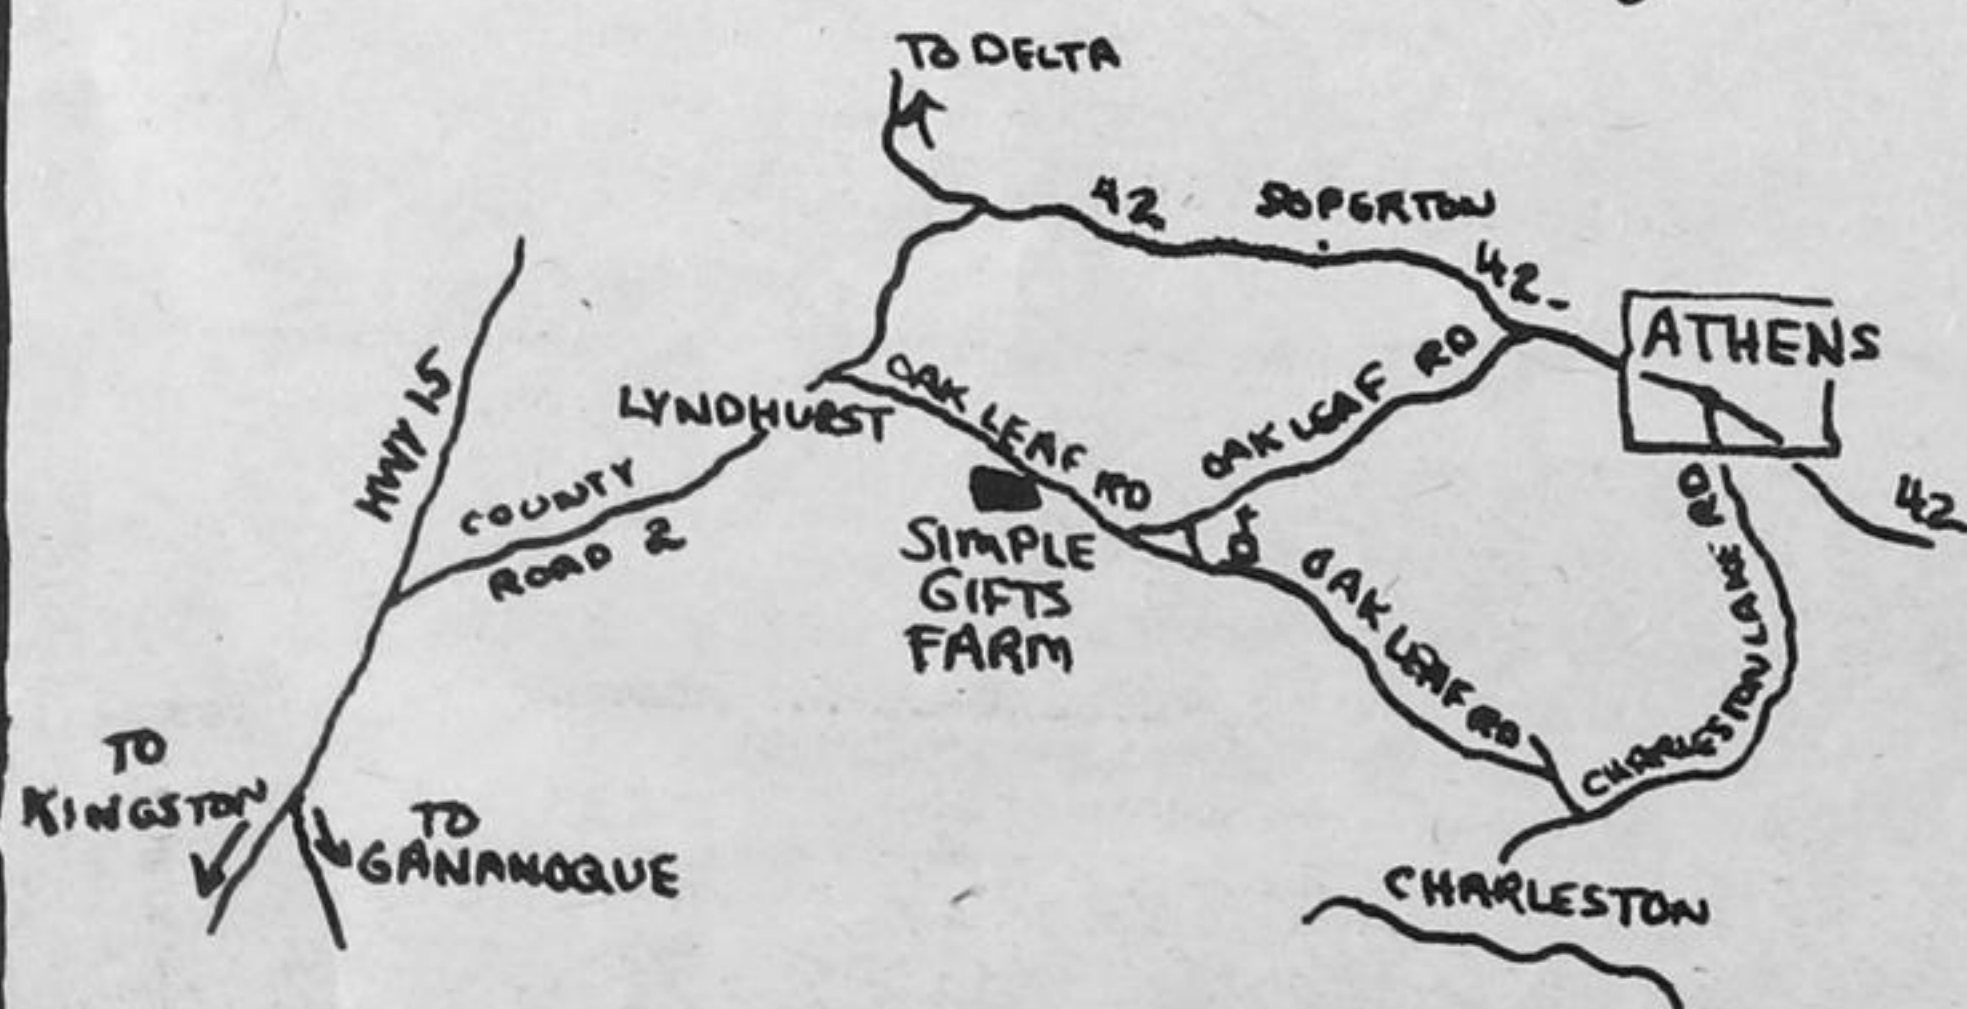 TO DELTA
42
SOPERTON
42
ATHENS
HWY 15
LYNDHURST
OAK LEAF RD
OAK LEAF RD
COUNTY
ROAD 2
SIMPLE
GIFTS
FARM
OAK LEAF RD
CHARLESTON LAKE RD
42
TO
KINGSTON
TO
GANANOQUE
CHARLESTON